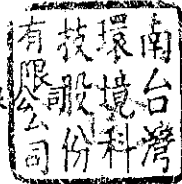 南台灣
環境科
技股份
有限公司